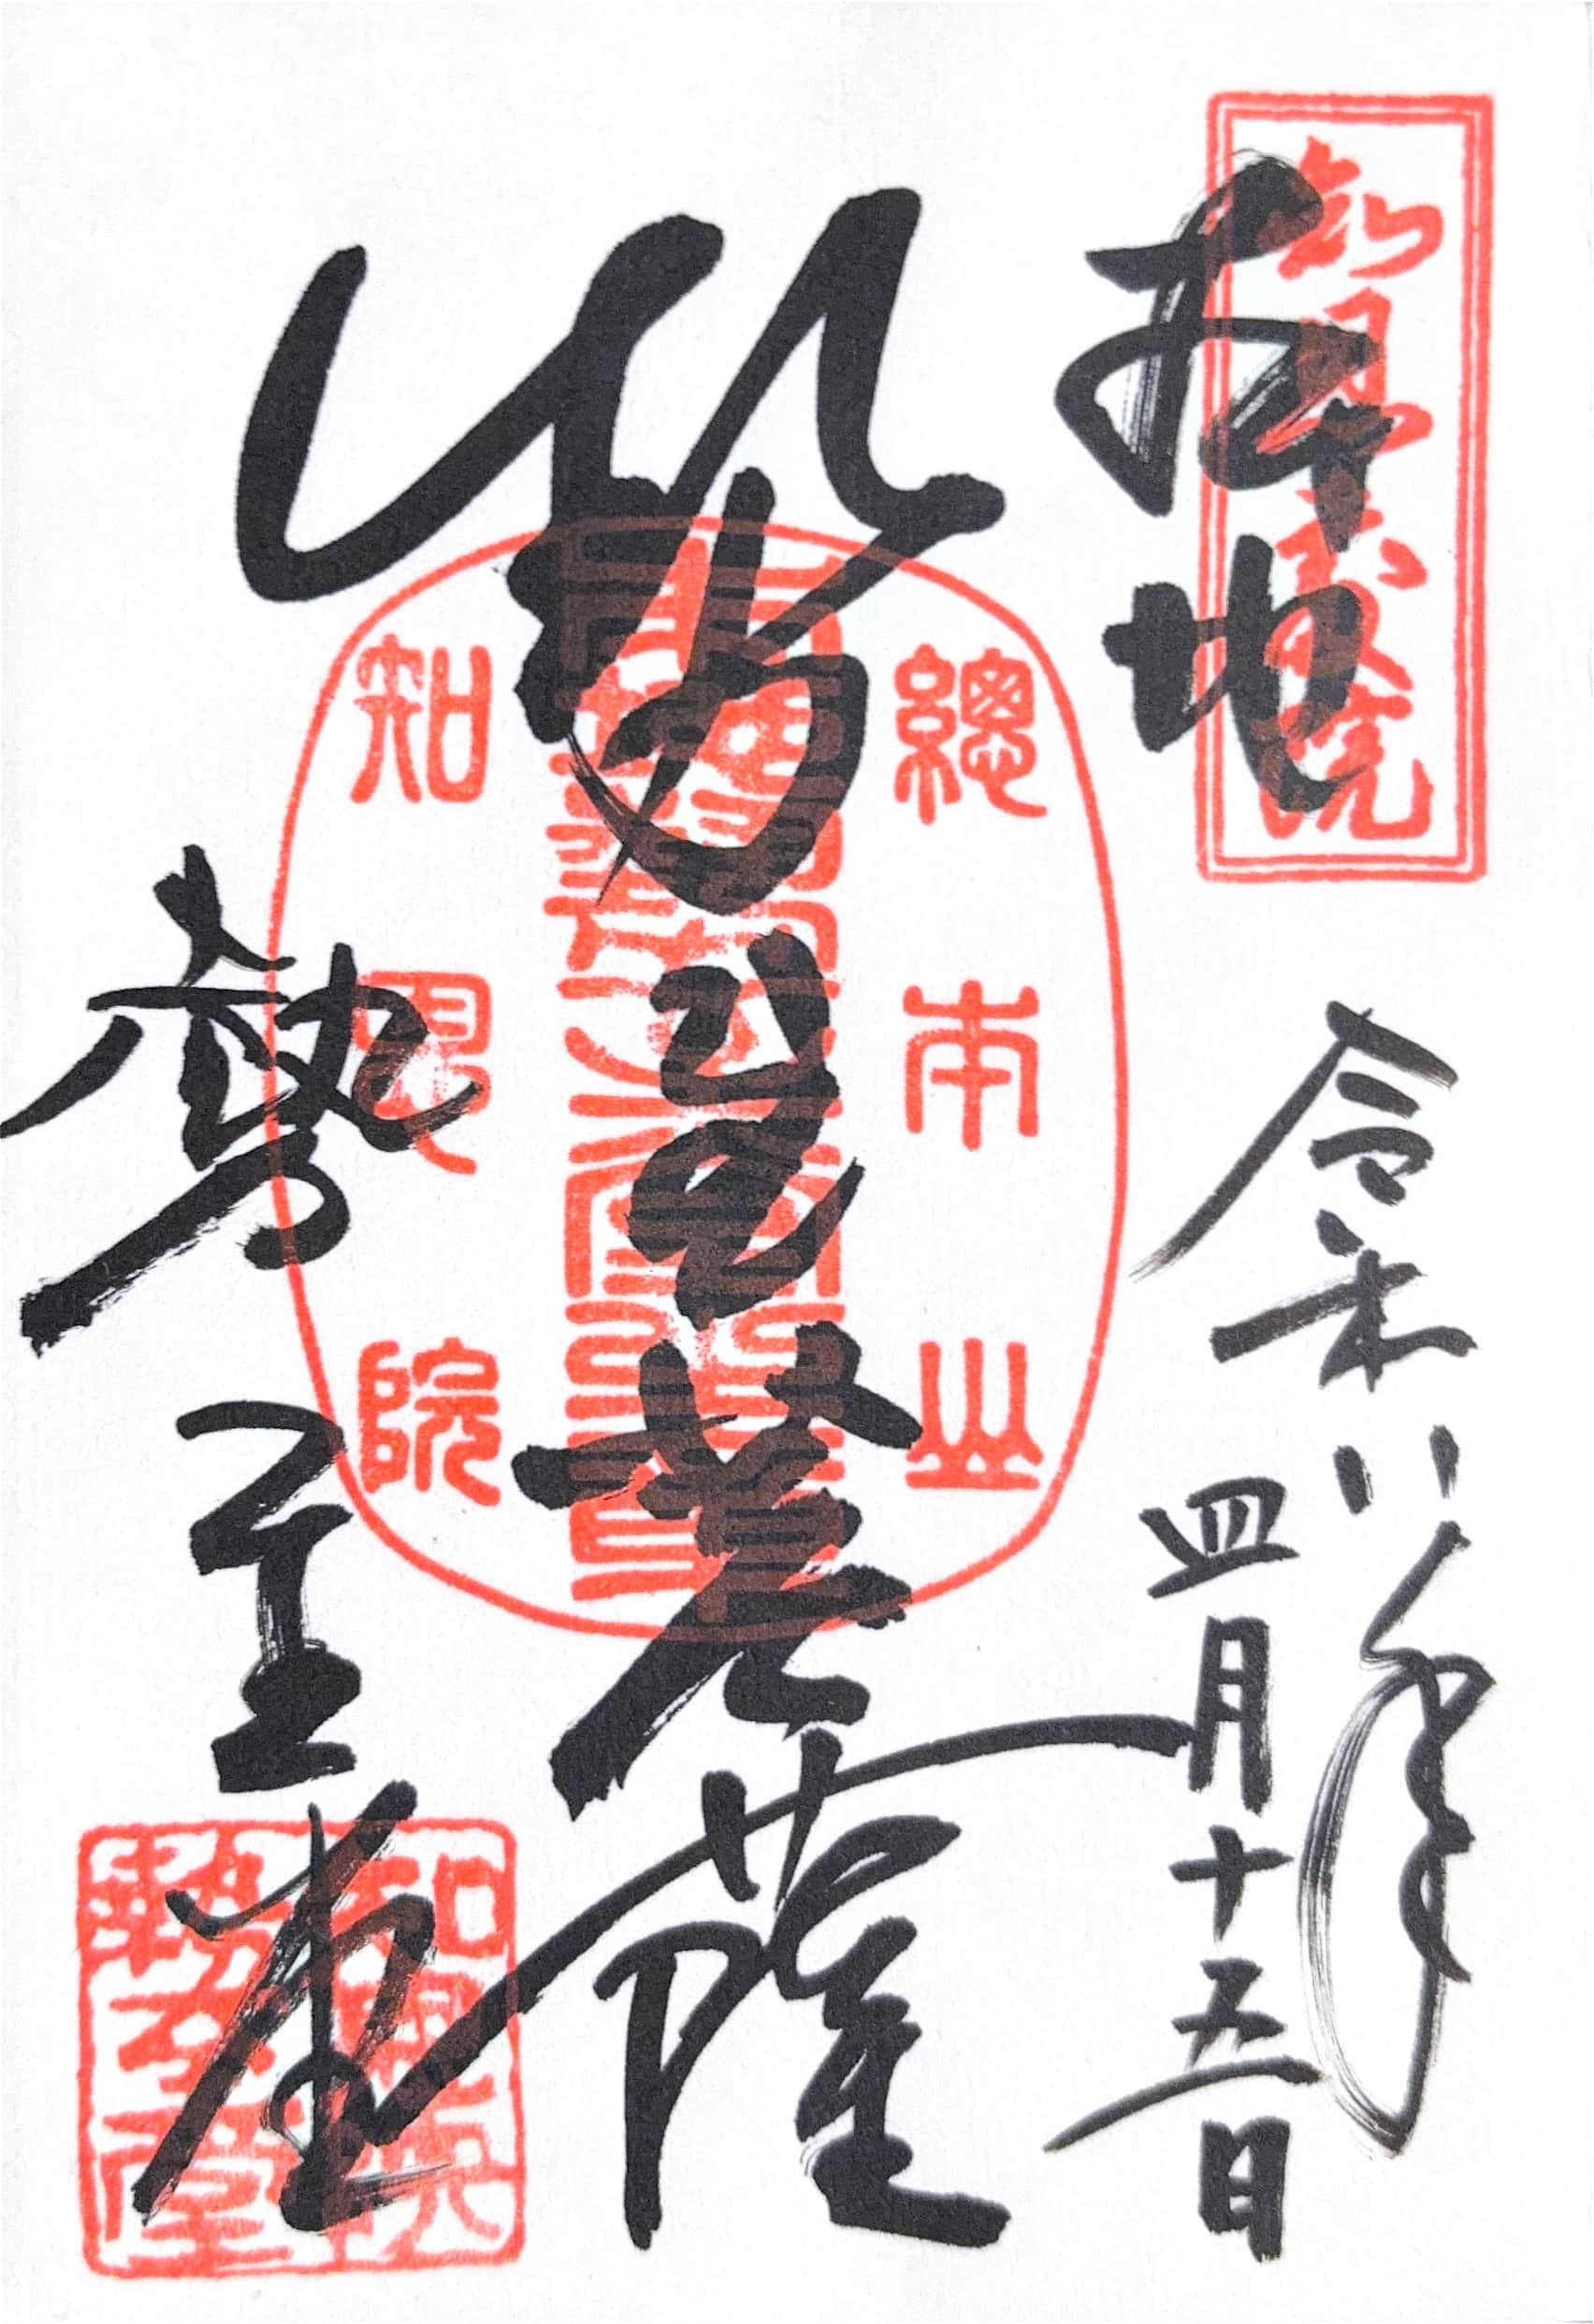 知恩教院
本地
令和八年
四月十五日
總本山
勢至菩薩
知恩院
勢至堂
知恩院
勢至堂